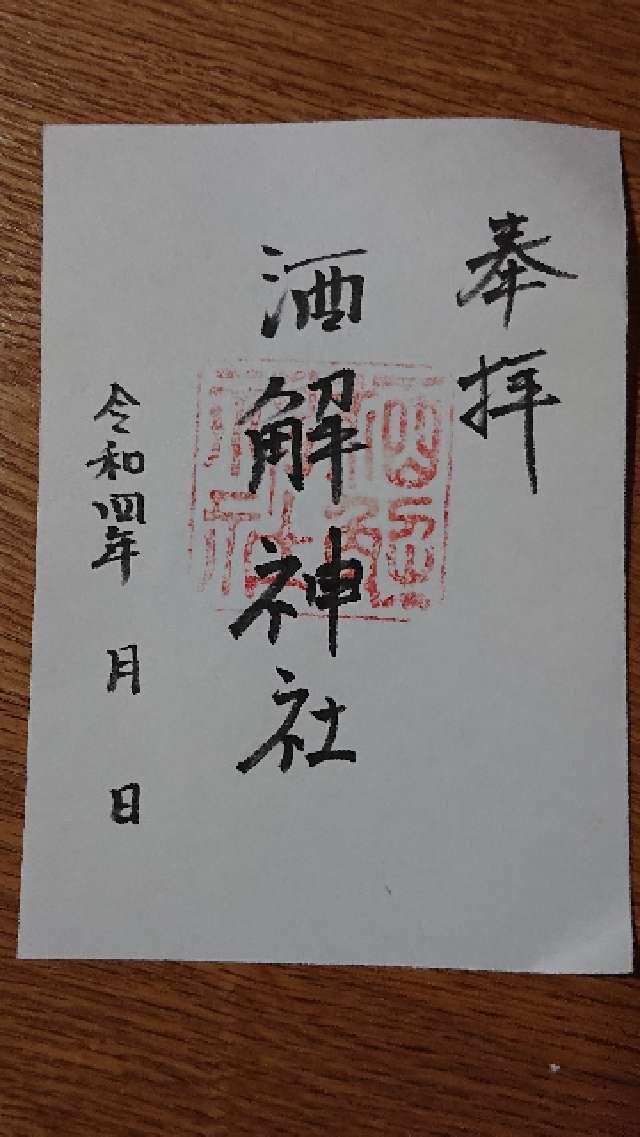 奉拝
酒解神社
令和四年 月 日